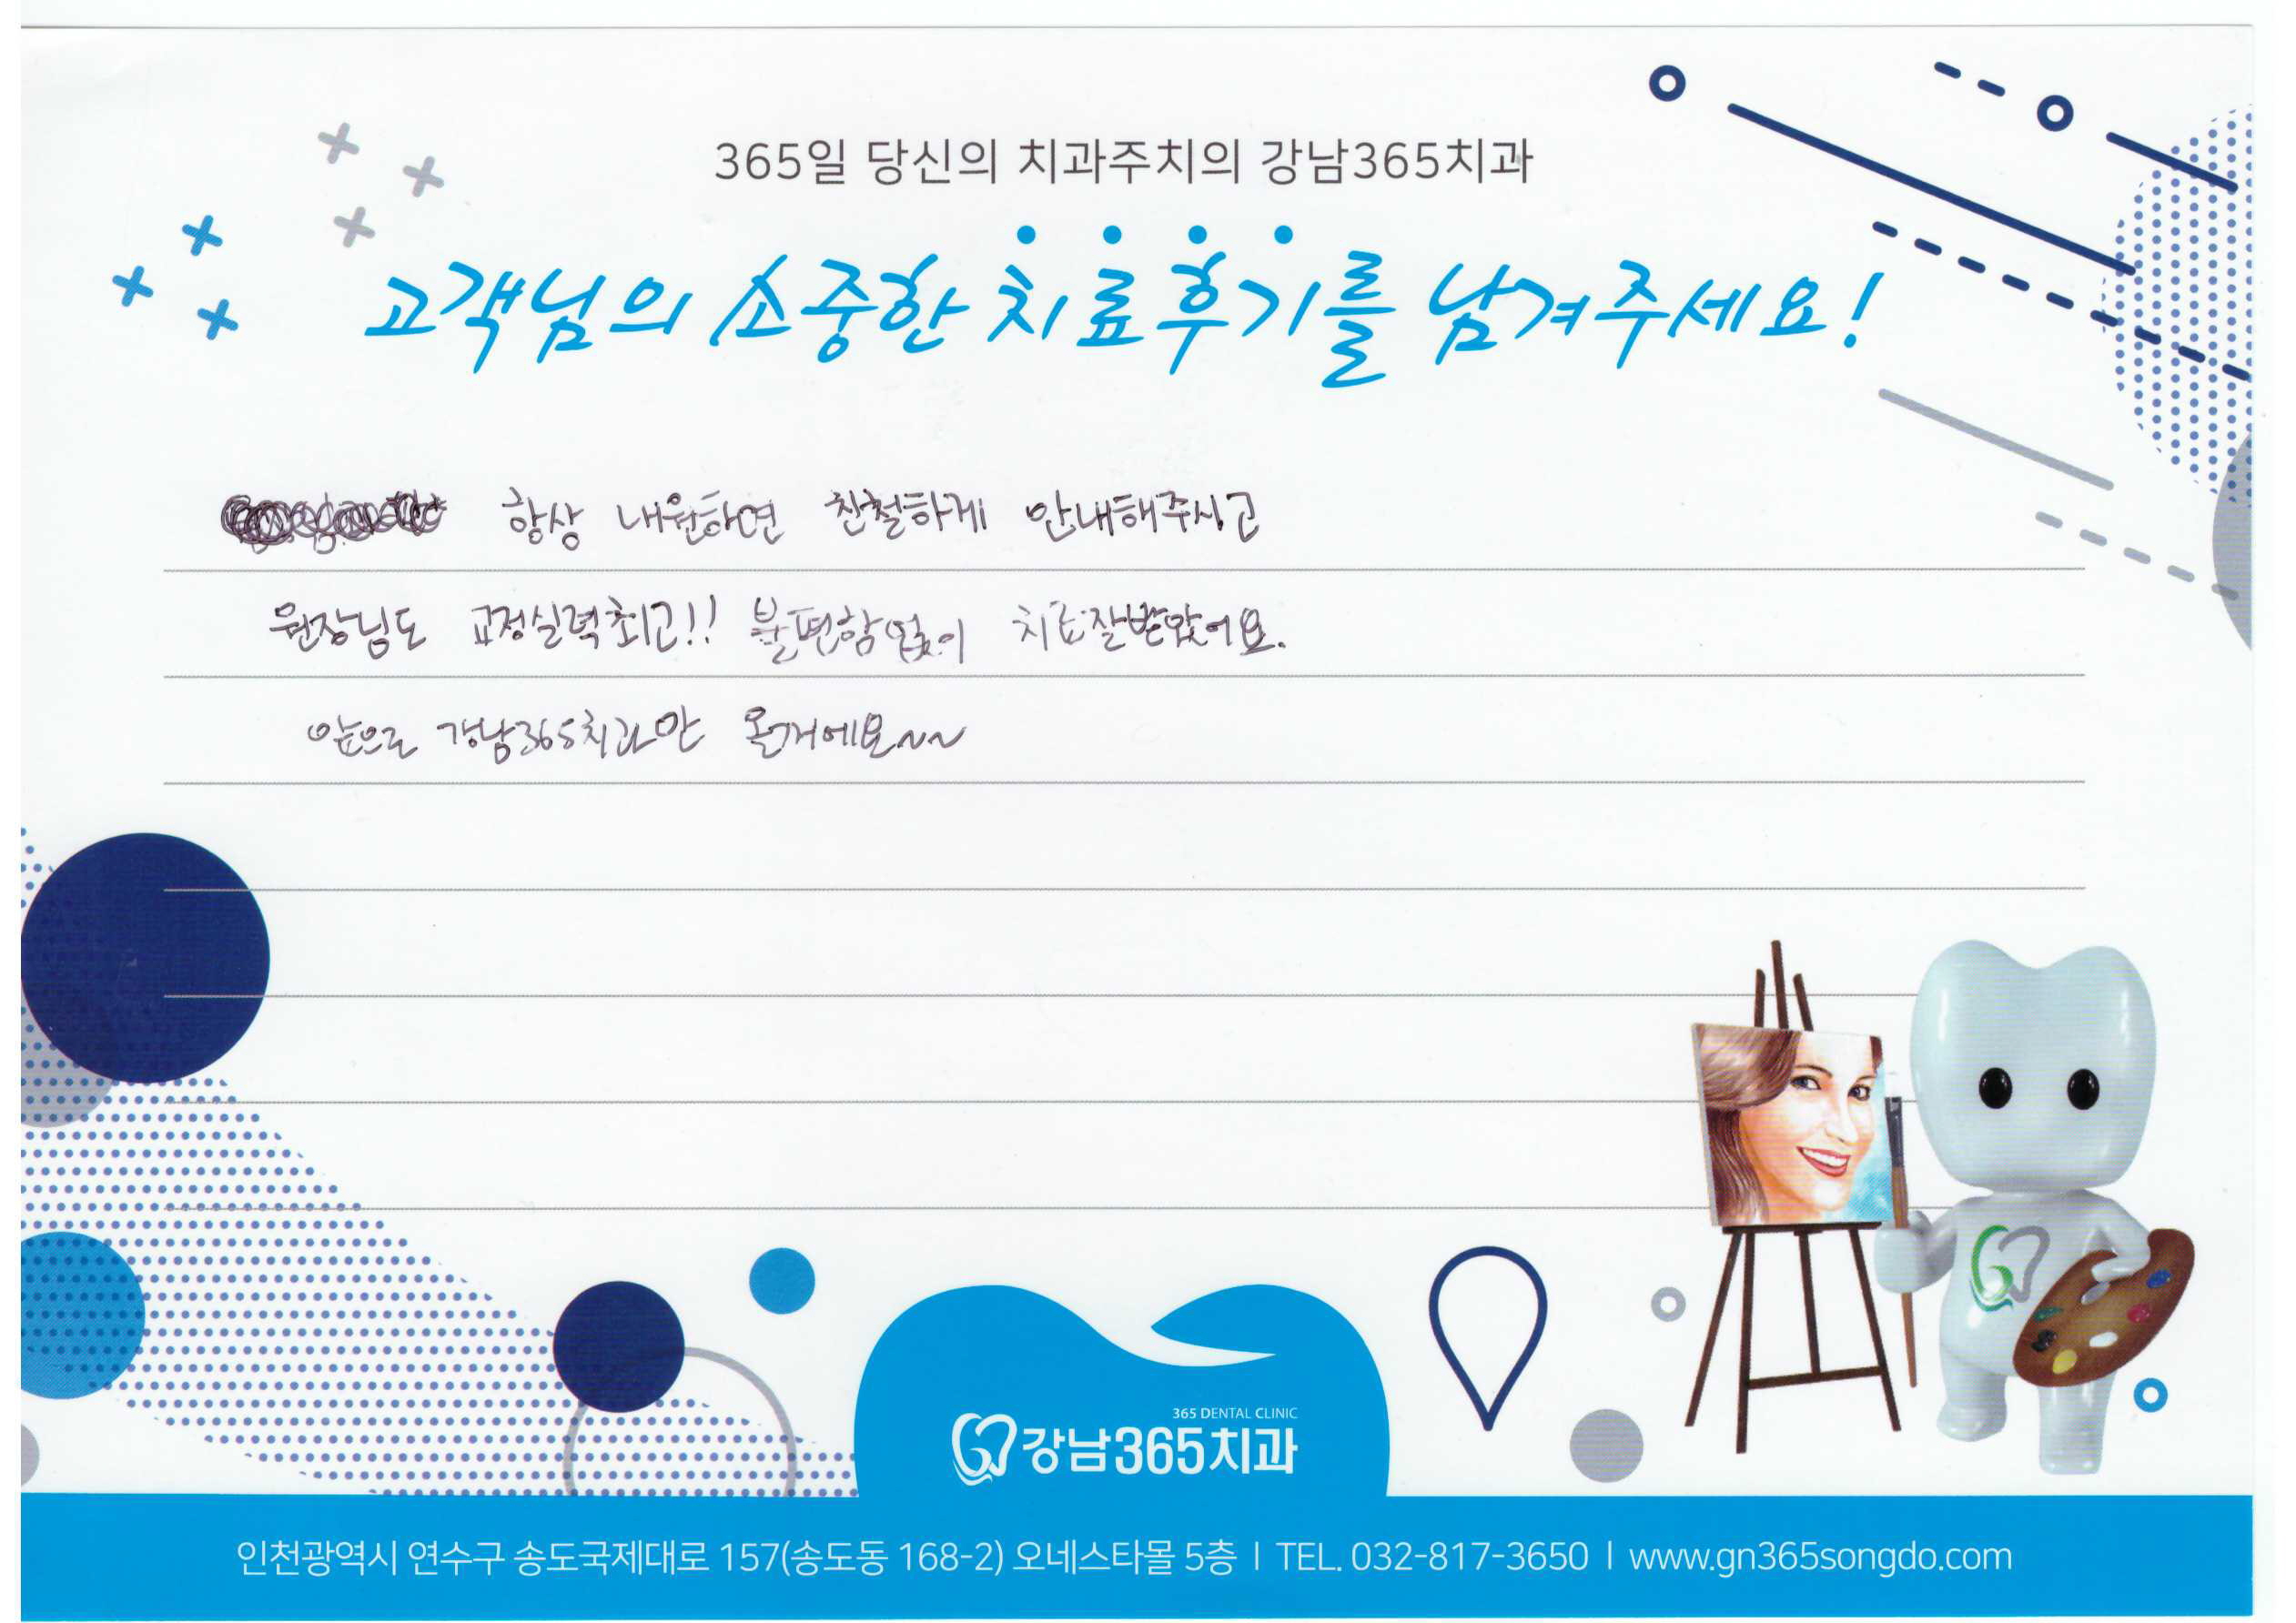 365일 당신의 치과주치의 강남365치과
고객님의 소중한 치료후기를 남겨주세요!
항상 내원하면 친철하게 안내해주시고
원장님도 교정실력최고!! 불편함없이 치료잘받았어요.
앞으로 강남365치과만 올거에요~~
365 DENTAL CLINIC
강남365치과
인천광역시 연수구 송도국제대로 157(송도동 168-2) 오네스타몰 5층 | TEL. 032-817-3650 | www.gn365songdo.com